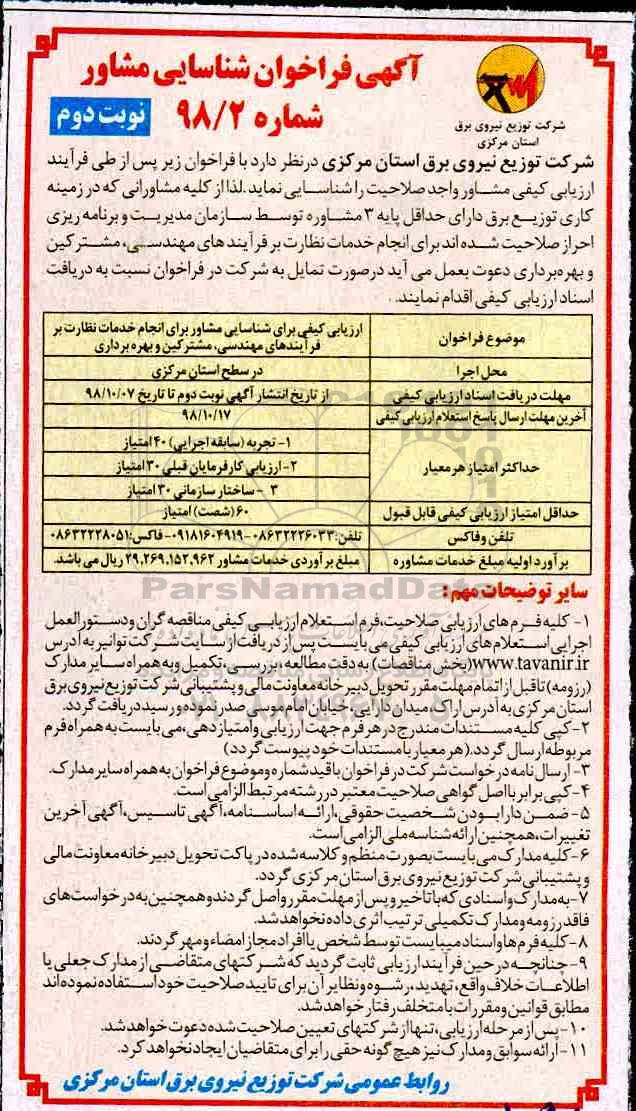 آگهی فراخوان شناسایی مشاور
شماره ۹۸/۲
نوبت دوم
شرکت توزیع نیروی برق
استان مرکزی
شرکت توزیع نیروی برق استان مرکزی درنظر دارد با فراخوان زیر پس از طی فرآیند
ارزیابی کیفی مشاور واجد صلاحیت را شناسایی نماید.لذا از کلیه مشاورانی که در زمینه
کاری توزیع برق دارای حداقل پایه ۳ مشاوره توسط سازمان مدیریت و برنامه ریزی
احراز صلاحیت شده اند برای انجام خدمات نظارت بر فرآیند های مهندسی، مشترکین
و بهره برداری دعوت بعمل می آید درصورت تمایل به شرکت در فراخوان نسبت به دریافت
اسناد ارزیابی کیفی اقدام نمایند.
موضوع فراخوان
ارزیابی کیفی برای شناسایی مشاور برای انجام خدمات نظارت بر
فرآیندهای مهندسی، مشترکین و بهره برداری
محل اجرا
در سطح استان مرکزی
مهلت دریافت اسناد ارزیابی کیفی
از تاریخ انتشار آگهی نوبت دوم تا تاریخ ۹۸/۱۰/۰۷
آخرین مهلت ارسال پاسخ استعلام ارزیابی کیفی
۹۸/۱۰/۱۷
حداکثر امتیاز هر معیار
۱- تجربه (سابقه اجرایی) ۴۰ امتیاز
۲- ارزیابی کارفرمایان قبلی ۳۰ امتیاز
۳ - ساختار سازمانی ۳۰ امتیاز
حداقل امتیاز ارزیابی کیفی قابل قبول
۶۰(شصت) امتیاز
تلفن وفاکس
تلفن:۰۸۶۳۲۲۲۶۰۳۳-۰۹۱۸۱۶۰۴۹۱۹ فاکس:۰۸۶۳۲۲۲۸۰۵۱
برآورد اولیه مبلغ خدمات مشاوره
مبلغ برآوردی خدمات مشاور ۲۹,۲۶۹,۱۵۲,۹۶۲ ریال می باشد.
ParsNamadData
سایر توضیحات مهم :
۱- کلیه فرم های ارزیابی صلاحیت،فرم استعلام ارزیابی کیفی مناقصه گران ودستورالعمل
اجرایی استعلام های ارزیابی کیفی می بایست پس از دریافت از سایت شرکت توانیر به آدرس
www.tavanir.ir(بخش مناقصات) به دقت مطالعه ، بررسی ، تکمیل و به همراه سایر مدارک
(رزومه) تا قبل از اتمام مهلت مقرر تحویل دبیرخانه معاونت مالی و پشتیبانی شرکت توزیع نیروی برق
استان مرکزی به آدرس اراک، میدان دارایی، خیابان امام موسی صدر نموده و رسید دریافت گردد.
۲-کپی کلیه مستندات مندرج در هر فرم جهت ارزیابی وامتیازدهی،می بایست به همراه فرم
مربوطه ارسال گردد.(هر معیار با مستندات خود پیوست گردد)
۳- ارسال نامه درخواست شرکت در فراخوان با قید شماره و موضوع فراخوان به همراه سایر مدارک.
۴-کپی برابر با اصل گواهی صلاحیت معتبر در رشته مرتبط الزامی است.
۵- ضمن دارا بودن شخصیت حقوقی،ارائه اساسنامه،آگهی تاسیس،آگهی آخرین
تغییرات،همچنین ارائه شناسه ملی الزامی است.
۶-کلیه مدارک می بایست بصورت منظم و کلاسه شده در پاکت تحویل دبیرخانه معاونت مالی
و پشتیبانی شرکت توزیع نیروی برق استان مرکزی گردد.
۷-به مدارک واسنادی که با تاخیر و پس از مهلت مقرر واصل گردند و همچنین به درخواست های
فاقد رزومه و مدارک تکمیلی ترتیب اثری داده نخواهد شد.
۸-کلیه فرم ها و اسناد میبایست توسط شخص یا افراد مجاز امضاء و مهر گردند.
۹-چنانچه در حین فرآیند ارزیابی ثابت گردید که شرکتهای متقاضی از مدارک جعلی یا
اطلاعات خلاف واقع،تهدید، رشوه و نظایر آن برای تایید صلاحیت خود استفاده نموده اند
مطابق قوانین و مقررات با متخلف رفتار خواهد شد.
۱۰- پس از مرحله ارزیابی، تنها از شرکتهای تعیین صلاحیت شده دعوت خواهد شد.
۱۱- ارائه سوابق و مدارک نیز هیچ گونه حقی را برای متقاضیان ایجاد نخواهد کرد.
روابط عمومی شرکت توزیع نیروی برق استان مرکزی